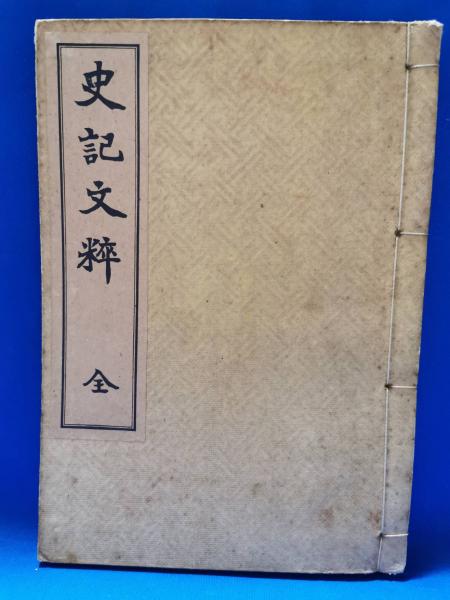 史記文粹 全